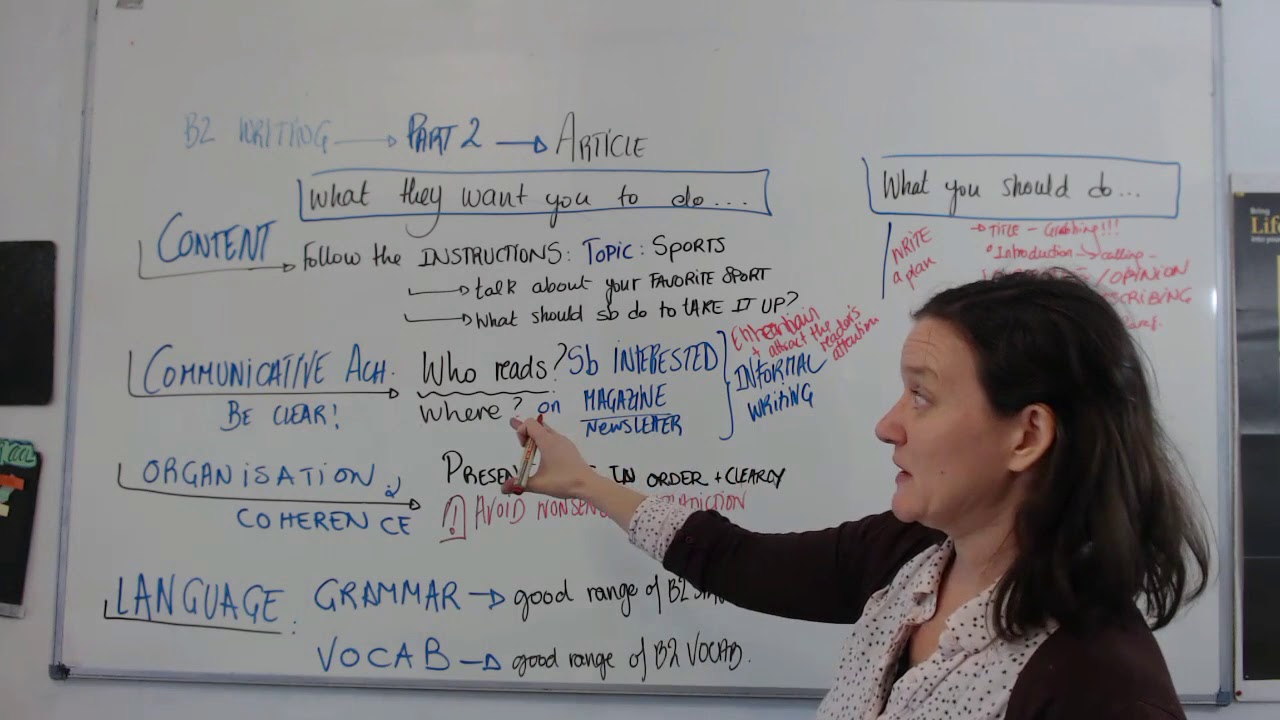 B2 WRITING → PART 2 → ARTICLE
What they want you to do...
CONTENT
Follow the INSTRUCTIONS: TOPIC: SPORTS
→ talk about your FAVORITE SPORT
→ What should sb do to TAKE IT UP?
COMMUNICATIVE ACH.
BE CLEAR!
Who reads? Sb INTERESTED
Where? on MAGAZINE
NEWSLETTER
+ attract the reader's attention
INFORMAL
WRITING
ORGANISATION
COHERENCE
IN ORDER + CLEARLY
! AVOID
LANGUAGE:
GRAMMAR → good range of B2
VOCAB → good range of B2 VOCAB.
What you should do...
WRITE
a plan
→ TITLE - Grabbing!!!
• Introduction →
/ OPINION
Bring
Life